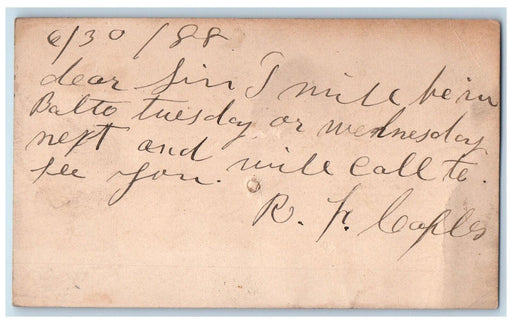 6/30/88
dear Sir I will be in
Balto tuesday or wednesday
next and will call to
see you.
R. F. Caples